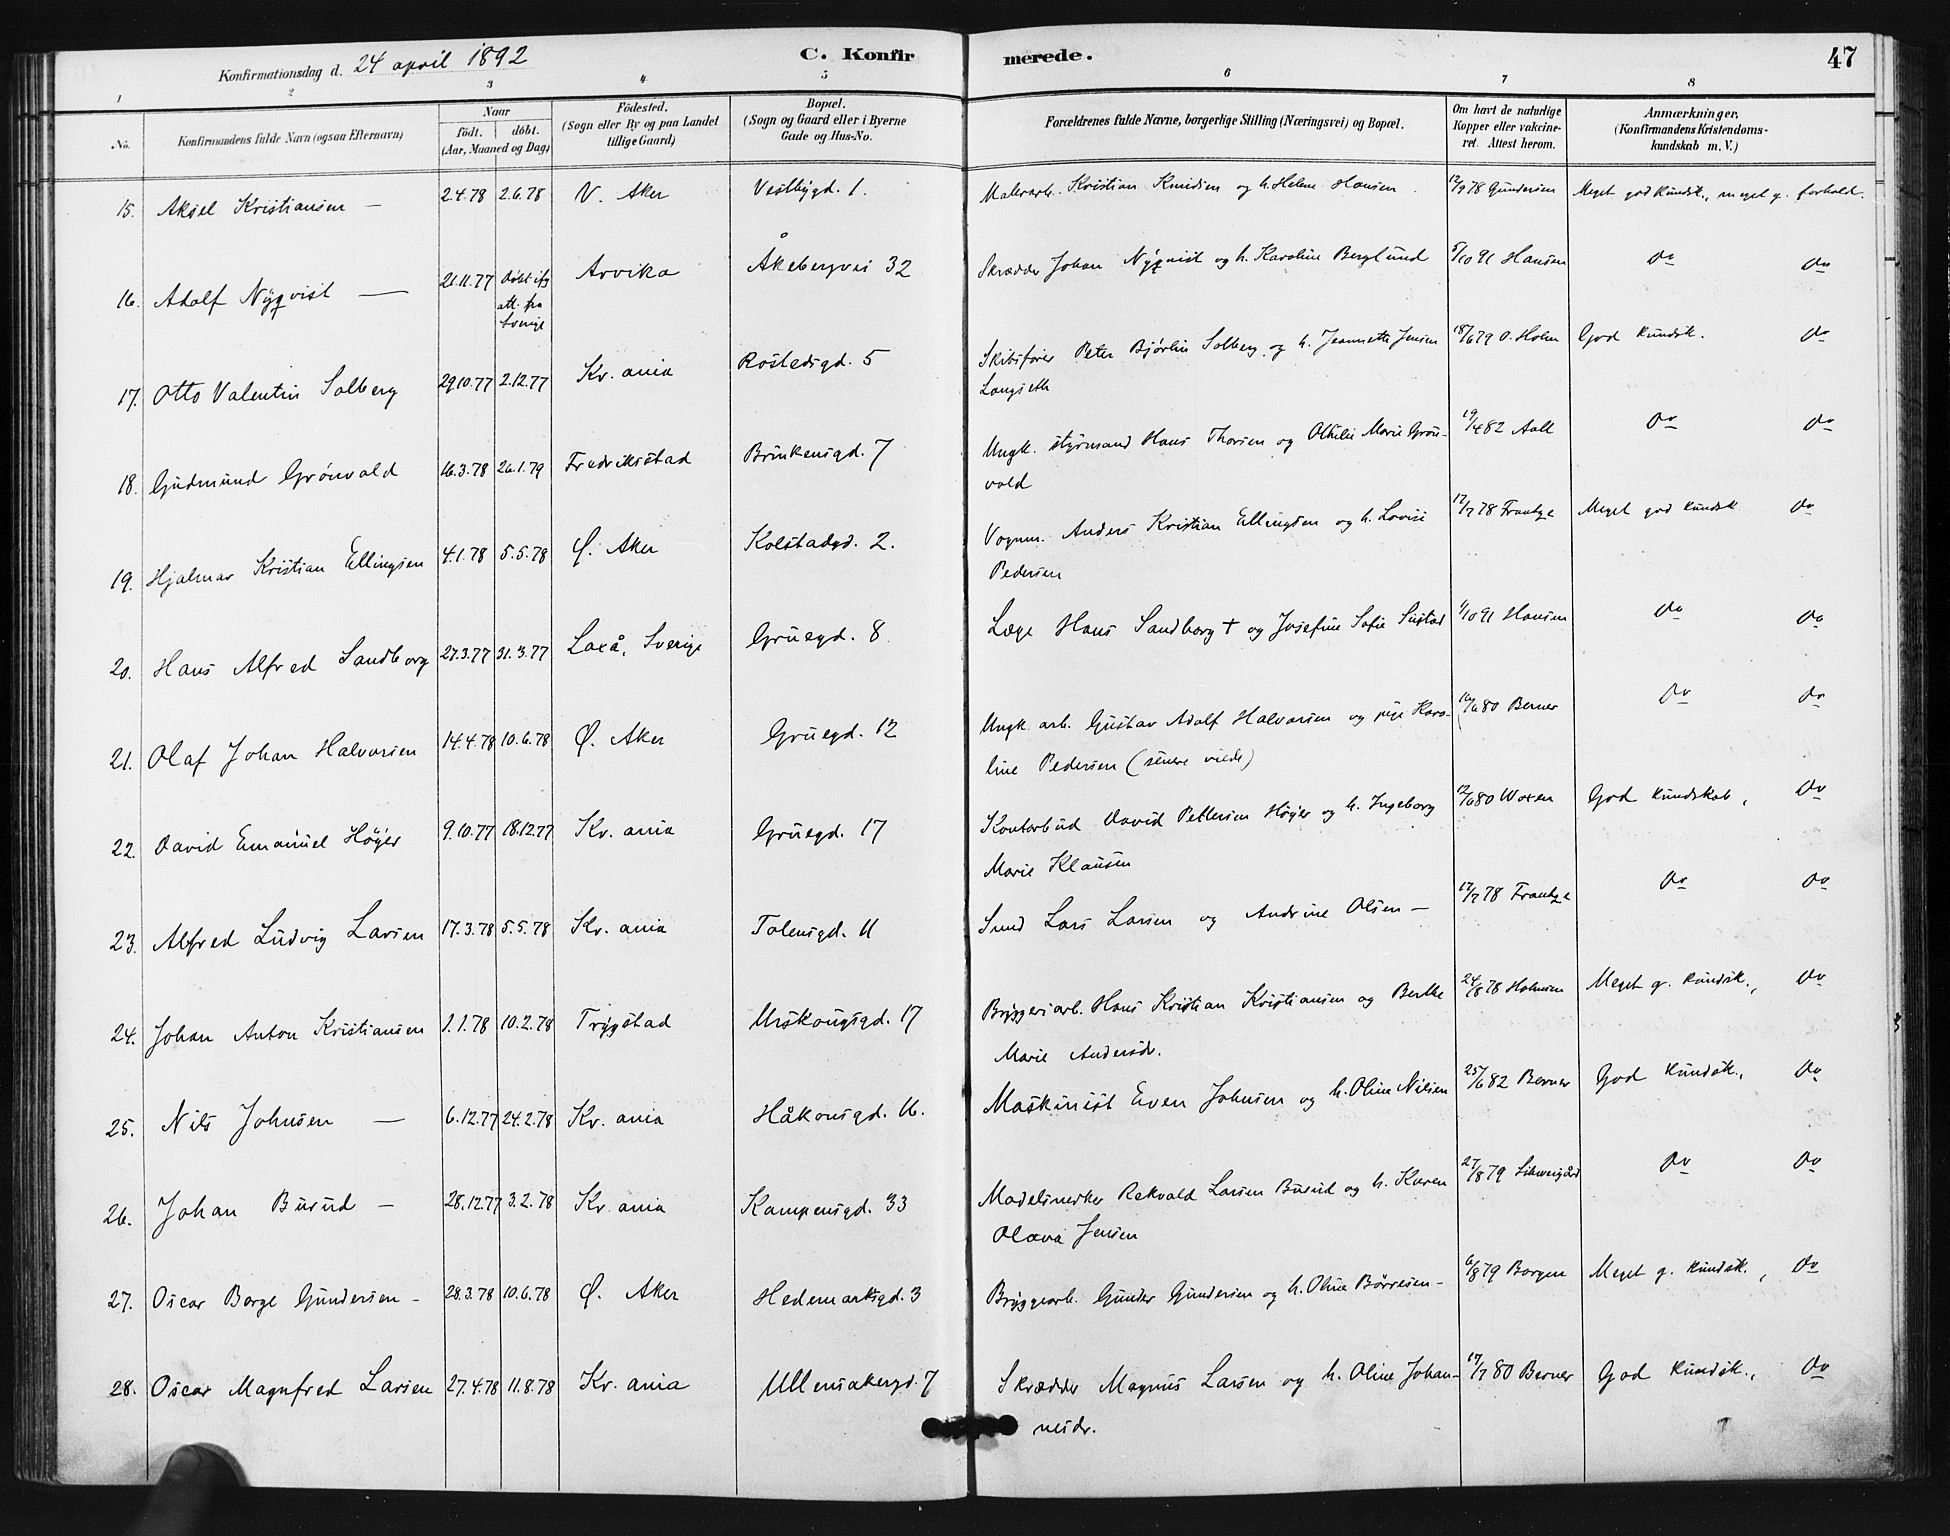 Konfirmationsdag d. 24 april 1892 C. Konfirmerede. 47
1 2 3 4 5 6 7 8
No. Konfirmandens fulde Navn (ogsaa Efternavn) Naar født. døbt. (Aar, Maaned og Dag) Fødested. (Sogn eller By og paa Landet tillige Gaard) Bopæl. (Sogn og Gaard eller i Byerne Gade og Hus-No. Forældrenes fulde Navne, borgerlige Stilling (Næringsvei) og Bopæl. Om havt de naturlige Kopper eller vakcineret. Attest herom. Anmærkninger. (Konfirmandens Kristendomskundskab m. V.)
15. Aksel Kristiansen — 2.4.78 2.6.78 V. Aker Vestbygd. 1. Malerarb. Kristian Knudsen og h. Helene Hansen 12/9 78 Gundersen Meget god kundsk., meget g. forhold.
16. Adolf Nyqvist — 21.11.77 Døbt ifg. att. fra Sverige Arvika Åkebergvei 32 Skrædder Johan Nyqvist og h. Karoline Berglund 5/10 91 Hansen do do
17. Otto Valentin Solberg 29.10.77 2.12.77 Kr. ania Rostedsgd. 5 Skibsfører Peter Bjørlin Solberg og h. Jeannette Jensen
Langseth 18/6 79 O. Holm God kundsk. do
18. Gudmund Grønvold 16.3.78 26.1.79 Fredrikstad Brinkensgd. 7 Ungk. styrmand Hans Thorsen og Othilie Marie Grøn-
vold 19/4 82 Aall do do
19. Hjalmar Kristian Ellingsen 4.1.78 5.5.78 Ø. Aker Kolstadgd. 2. Vognm. Anders Kristian Ellingsen og h. Lovise
Pedersen 17/7 78 Frantze Meget god kundsk do
20. Hans Alfred Sandborg 27.3.77 31.3.77 Laxå, Sverige Gruegd. 8 Læge Hans Sandborg † og Josefine Sofie Sustad 1/10 91 Hansen do do
21. Olaf Johan Halvorsen 14.4.78 10.6.78 Ø. Aker Gruegd. 12 Ungk. arb. Gustav Adolf Halvorsen og pige Karo-
line Pedersen (senere viede) 16/6 80 Berner do do
22. David Emanuel Høyer 9.10.77 18.12.77 Kr. ania Gruegd. 17 Kontorbud David Pettersen Høyer og h. Ingeborg
Marie Klausen 12/6 80 Woxen God kundskab, do
23. Alfred Ludvig Larsen 17.3.78 5.5.78 Kr. ania Tøiensgd. 11 Smed Lars Larsen og Andrine Olsen — 17/7 78 Frantze do do
24. Johan Anton Kristiansen 1.1.78 10.2.78 Trygstad Urskougsgd. 17 Bryggeriarb. Hans Kristian Kristiansen og Berthe
Marie Andersdr. 24/8 78 Holmsen Meget g. kundsk., do
25. Nils Johnsen — 6.12.77 24.2.78 Kr. ania Håkonsgd. 16. Maskinist Even Johnsen og h. Oline Nilsen 25/6 82 Berner God kundsk., do
26. Johan Burud — 28.12.77 3.2.78 Kr. ania Kampensgd. 33 Modelsnedker Rekvald Larsen Burud og h. Karen
Olava Jensen 27/8 79 Schweigård do do
27. Oscar Borge Gundersen – 28.3.78 10.6.78 Ø. Aker Hedemarksgd. 3 Bryggearb. Gunder Gundersen og h. Oline Børresen – 6/8 79 Borgen Meget g. kundsk., do
28. Oscar Magnfred Larsen 27.4.78 11.8.78 Kr. ania Ullensakergd. 7 Skrædder Magnus Larsen og h. Oline Johan-
nesdr. 17/7 80 Berner God kundsk., do